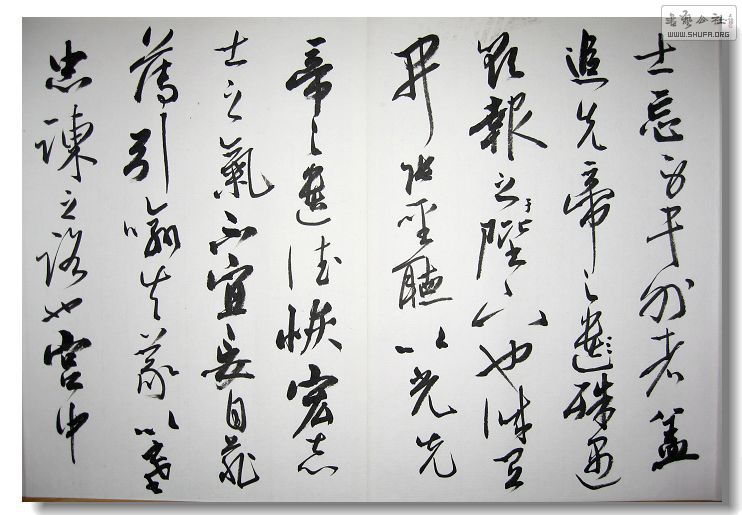 士忘身于外者盖
追先帝之遺殊遇
欲報之于陛下也誠宜
開張聖聽以光先
帝之遺德恢宏志
士之氣不宜妄自菲
薄引喻失義以塞
忠諫之路也宮中
書藝公社
WWW.SHUFA.ORG